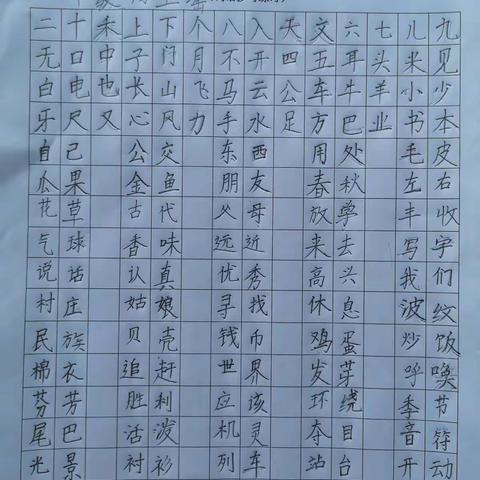 二十禾上下个八入大文六七儿九
无口中子门月不开四五耳头米见
白电也长山飞马云公车牛羊小少
牙尺又心风力手水足方巴业书本
自己 公交 东西 用处 毛皮
瓜果 金鱼 朋友 春秋 左右
花草 古代 父母 放学 丰收
气球 香味 远近 来去 写字
说话 认真 优秀 高兴 我们
村庄 姑娘 寻找 休息 波纹
民族 贝壳 钱币 鸡蛋 炒饭
棉衣 追赶 世界 发芽 呼唤
芬芳 胜利 应该 环绕 季节
尾巴 活泼 机灵 夺目 音符
光景 衬衫 列车 站台 开动